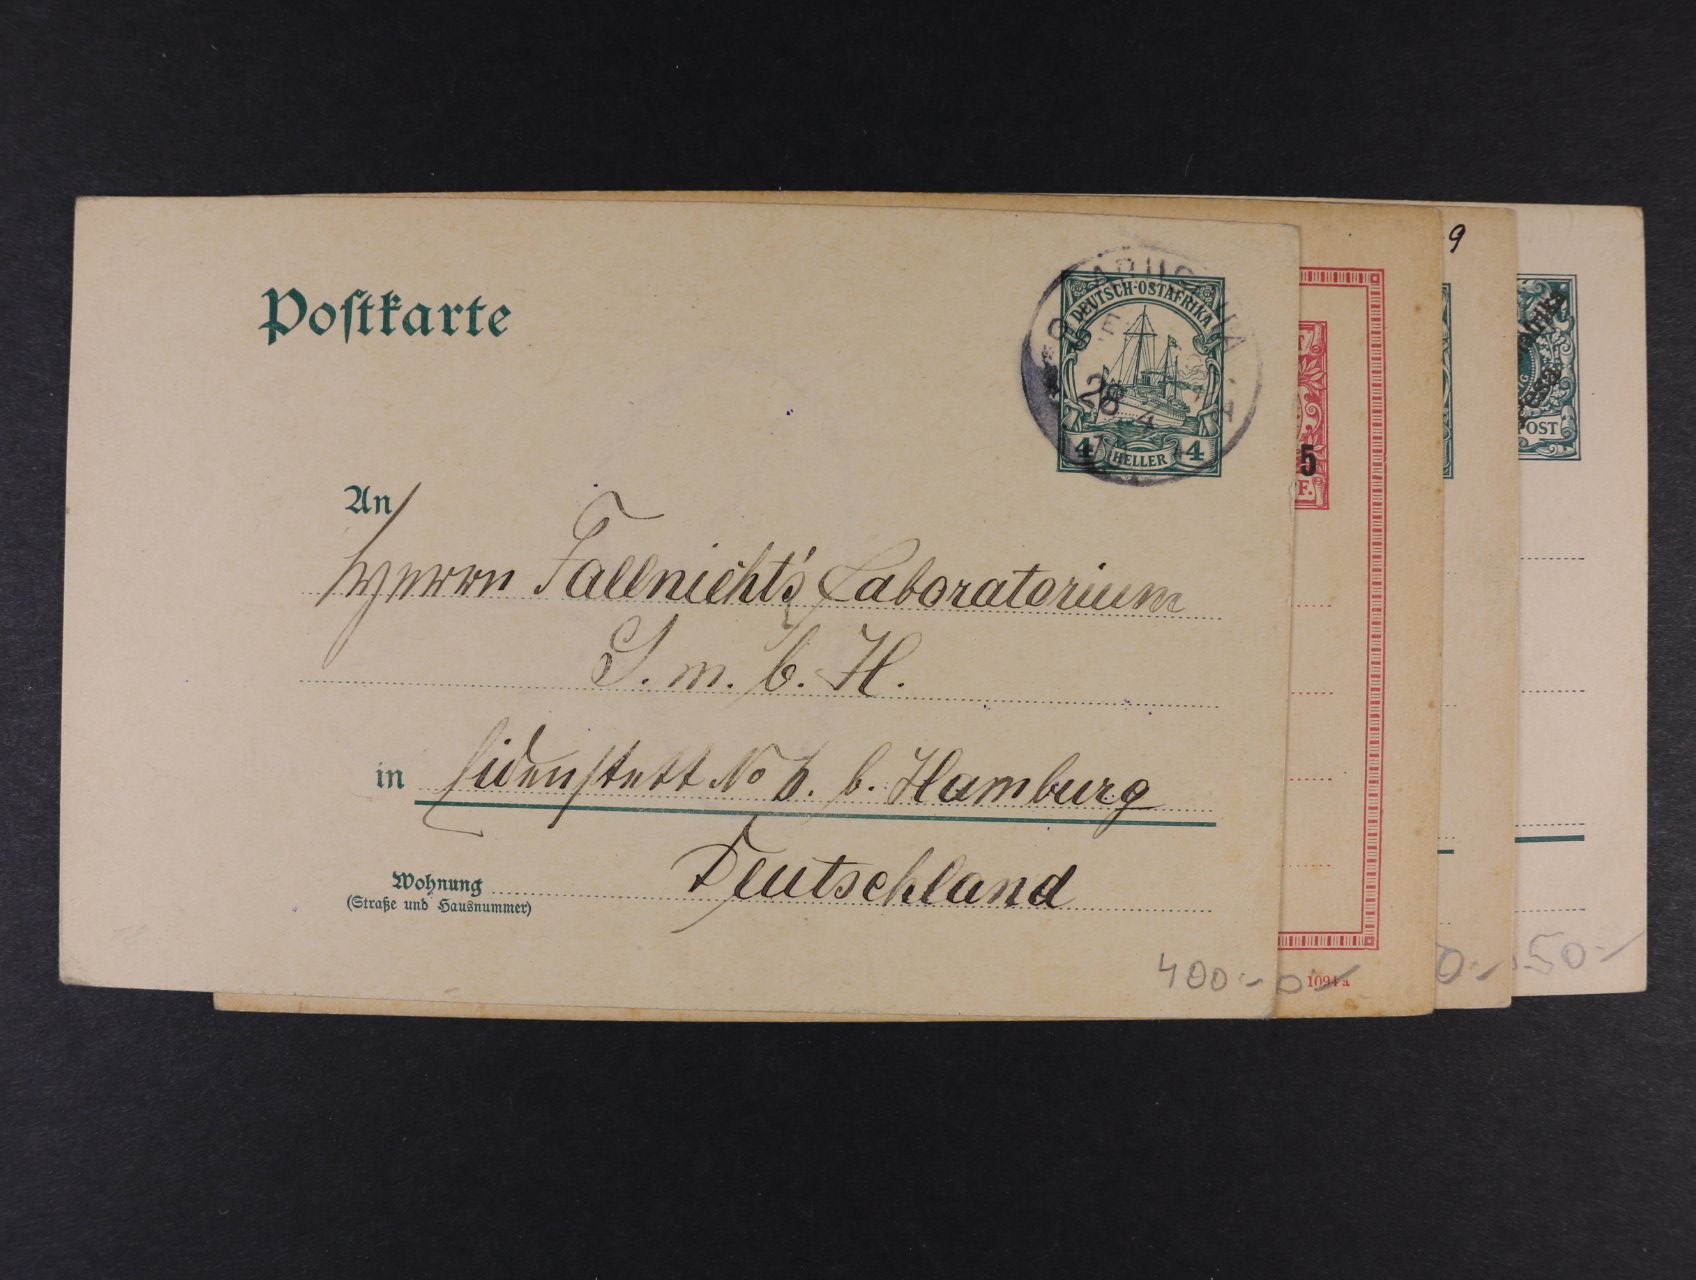 Postkarte
DEUTSCH-OSTAFRIKA
4 HELLER 4
An
Herrn Fallnicht's Laboratorium
G. m. b. H.
in Eidenstett No b. b. Hamburg
Deutschland
Wohnung
(Straße und Hausnummer)
400.-
5
F.
1094 a
9
0.-
POST
50.-